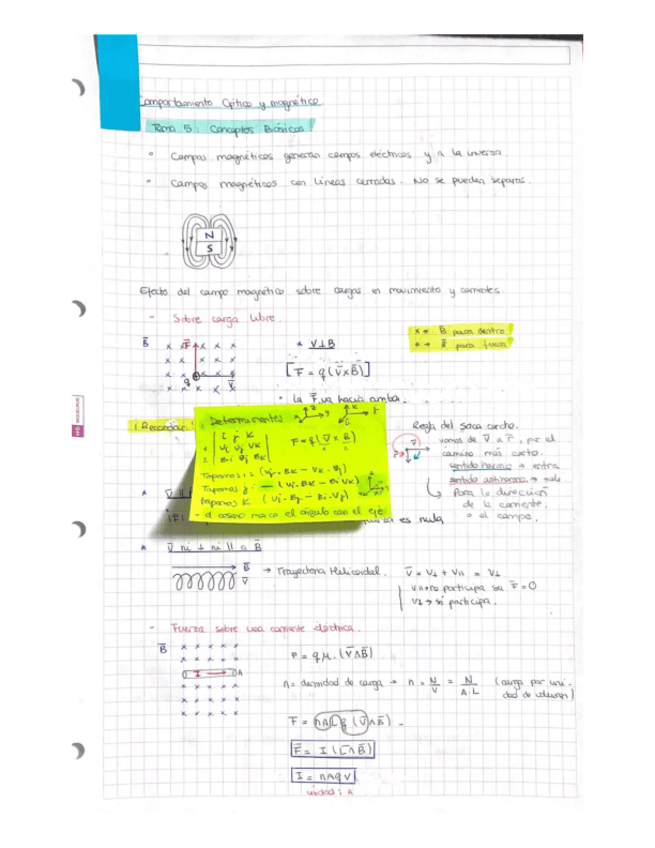 Comportamiento Óptico y magnético
Tema 5: Conceptos Básicos
Campos magnéticos generan campos eléctricos y a la inversa
- Campos magnéticos con líneas cerradas. No se pueden separar.
N
S
Efecto del campo magnético sobre cargas en movimiento y corrientes.
- Sobre carga libre.
B
V⊥B
x → B para dentro
• → B para fuera
[F = q(V×B)]
La F va hacia arriba.
¡Recordar!
Determinantes
i j K
Vi Vj VK
Bi Bj BK
F = q(V × B)
Tapamos i: (Vj·BK - VK·Bj)
Tapamos j: - (Vi·BK - Bi·VK)
tapamos K (Vi·Bj - Bi·Vj)
- el coseno marca el ángulo con el eje
Regla del saca corcho.
vamos de V a F, por el
camino más corto.
sentido horario → entra
sentido antihorario → sale
Para la dirección
de la corriente.
o el campo.
es nula
V ni ⊥ ni || a B
B
V
→ Trayectoria Helicoidal.
V = V⊥ + V|| = V⊥
V|| → no participa F = 0
V⊥ → sí participa.
- Fuerza sobre una corriente eléctrica.
B
I
A
n = densidad de carga → n = N/V = N/A·L (carga por uni-
dad de volumen)
F = nALq (V∧B)
F = I (L∧B)
I = nAqV
unidad: A